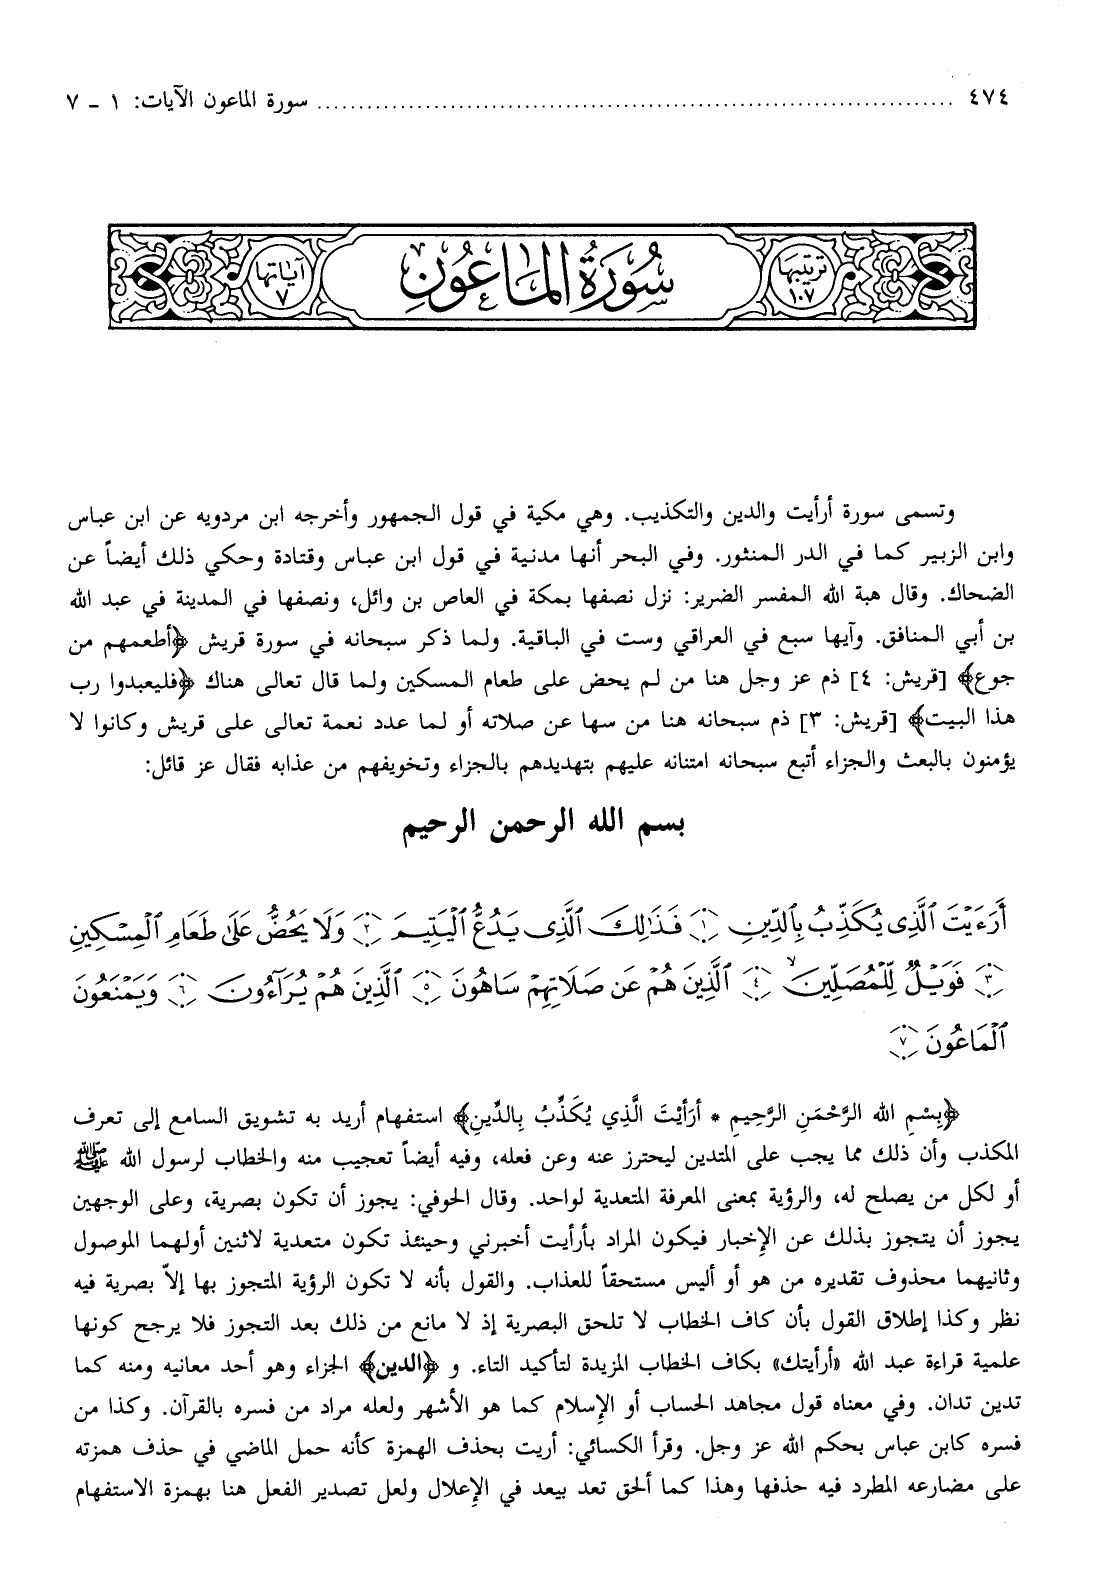 ٤٧٤ ........................................ سورة الماعون الآيات: ١ - ٧
ترتيبها ١٠٧
سُورَةُ المَاعُونِ
آياتها ٧
وتسمى سورة أرأيت والدين والتكذيب. وهي مكية في قول الجمهور وأخرجه ابن مردويه عن ابن عباس
وابن الزبير كما في الدر المنثور. وفي البحر أنها مدنية في قول ابن عباس وقتادة وحكي ذلك أيضاً عن
الضحاك. وقال هبة الله المفسر الضرير: نزل نصفها بمكة في العاص بن وائل، ونصفها في المدينة في عبد الله
بن أبي المنافق. وآيها سبع في العراقي وست في الباقية. ولما ذكر سبحانه في سورة قريش ﴿أطعمهم من
جوع﴾ [قريش: ٤] ذم عز وجل هنا من لم يحض على طعام المسكين ولما قال تعالى هناك ﴿فليعبدوا رب
هذا البيت﴾ [قريش: ٣] ذم سبحانه هنا من سها عن صلاته أو لما عدد نعمة تعالى على قريش وكانوا لا
يؤمنون بالبعث والجزاء أتبع سبحانه امتنانه عليهم بتهديدهم بالجزاء وتخويفهم من عذابه فقال عز قائل:
بسم الله الرحمن الرحيم
أَرَءَيْتَ ٱلَّذِى يُكَذِّبُ بِٱلدِّينِ ١ فَذَٰلِكَ ٱلَّذِى يَدُعُّ ٱلْيَتِيمَ ٢ وَلَا يَحُضُّ عَلَىٰ طَعَامِ ٱلْمِسْكِينِ
٣ فَوَيْلٌ لِّلْمُصَلِّينَ ٤ ٱلَّذِينَ هُمْ عَن صَلَاتِهِمْ سَاهُونَ ٥ ٱلَّذِينَ هُمْ يُرَآءُونَ ٦ وَيَمْنَعُونَ
ٱلْمَاعُونَ ٧
﴿بِسْمِ الله الرَّحْمَنِ الرَّحِيمِ * أرَأيْتَ الَّذِي يُكَذِّبُ بِالدِّينِ﴾ استفهام أريد به تشويق السامع إلى تعرف
المكذب وأن ذلك مما يجب على المتدين ليحترز عنه وعن فعله، وفيه أيضاً تعجيب منه والخطاب لرسول الله ﷺ
أو لكل من يصلح له، والرؤية بمعنى المعرفة المتعدية لواحد. وقال الحوفي: يجوز أن تكون بصرية، وعلى الوجهين
يجوز أن يتجوز بذلك عن الإخبار فيكون المراد بأرأيت أخبرني وحينئذ تكون متعدية لاثنين أولهما الموصول
وثانيهما محذوف تقديره من هو أو أليس مستحقاً للعذاب. والقول بأنه لا تكون الرؤية المتجوز بها إلاّ بصرية فيه
نظر وكذا إطلاق القول بأن كاف الخطاب لا تلحق البصرية إذ لا مانع من ذلك بعد التجوز فلا يرجح كونها
علمية قراءة عبد الله «أرأيتك» بكاف الخطاب المزيدة لتأكيد التاء. و ﴿الدين﴾ الجزاء وهو أحد معانيه ومنه كما
تدين تدان. وفي معناه قول مجاهد الحساب أو الإسلام كما هو الأشهر ولعله مراد من فسره بالقرآن. وكذا من
فسره كابن عباس بحكم الله عز وجل. وقرأ الكسائي: أريت بحذف الهمزة كأنه حمل الماضي في حذف همزته
على مضارعه المطرد فيه حذفها وهذا كما ألحق تعد بيعد في الإعلال ولعل تصدير الفعل هنا بهمزة الاستفهام